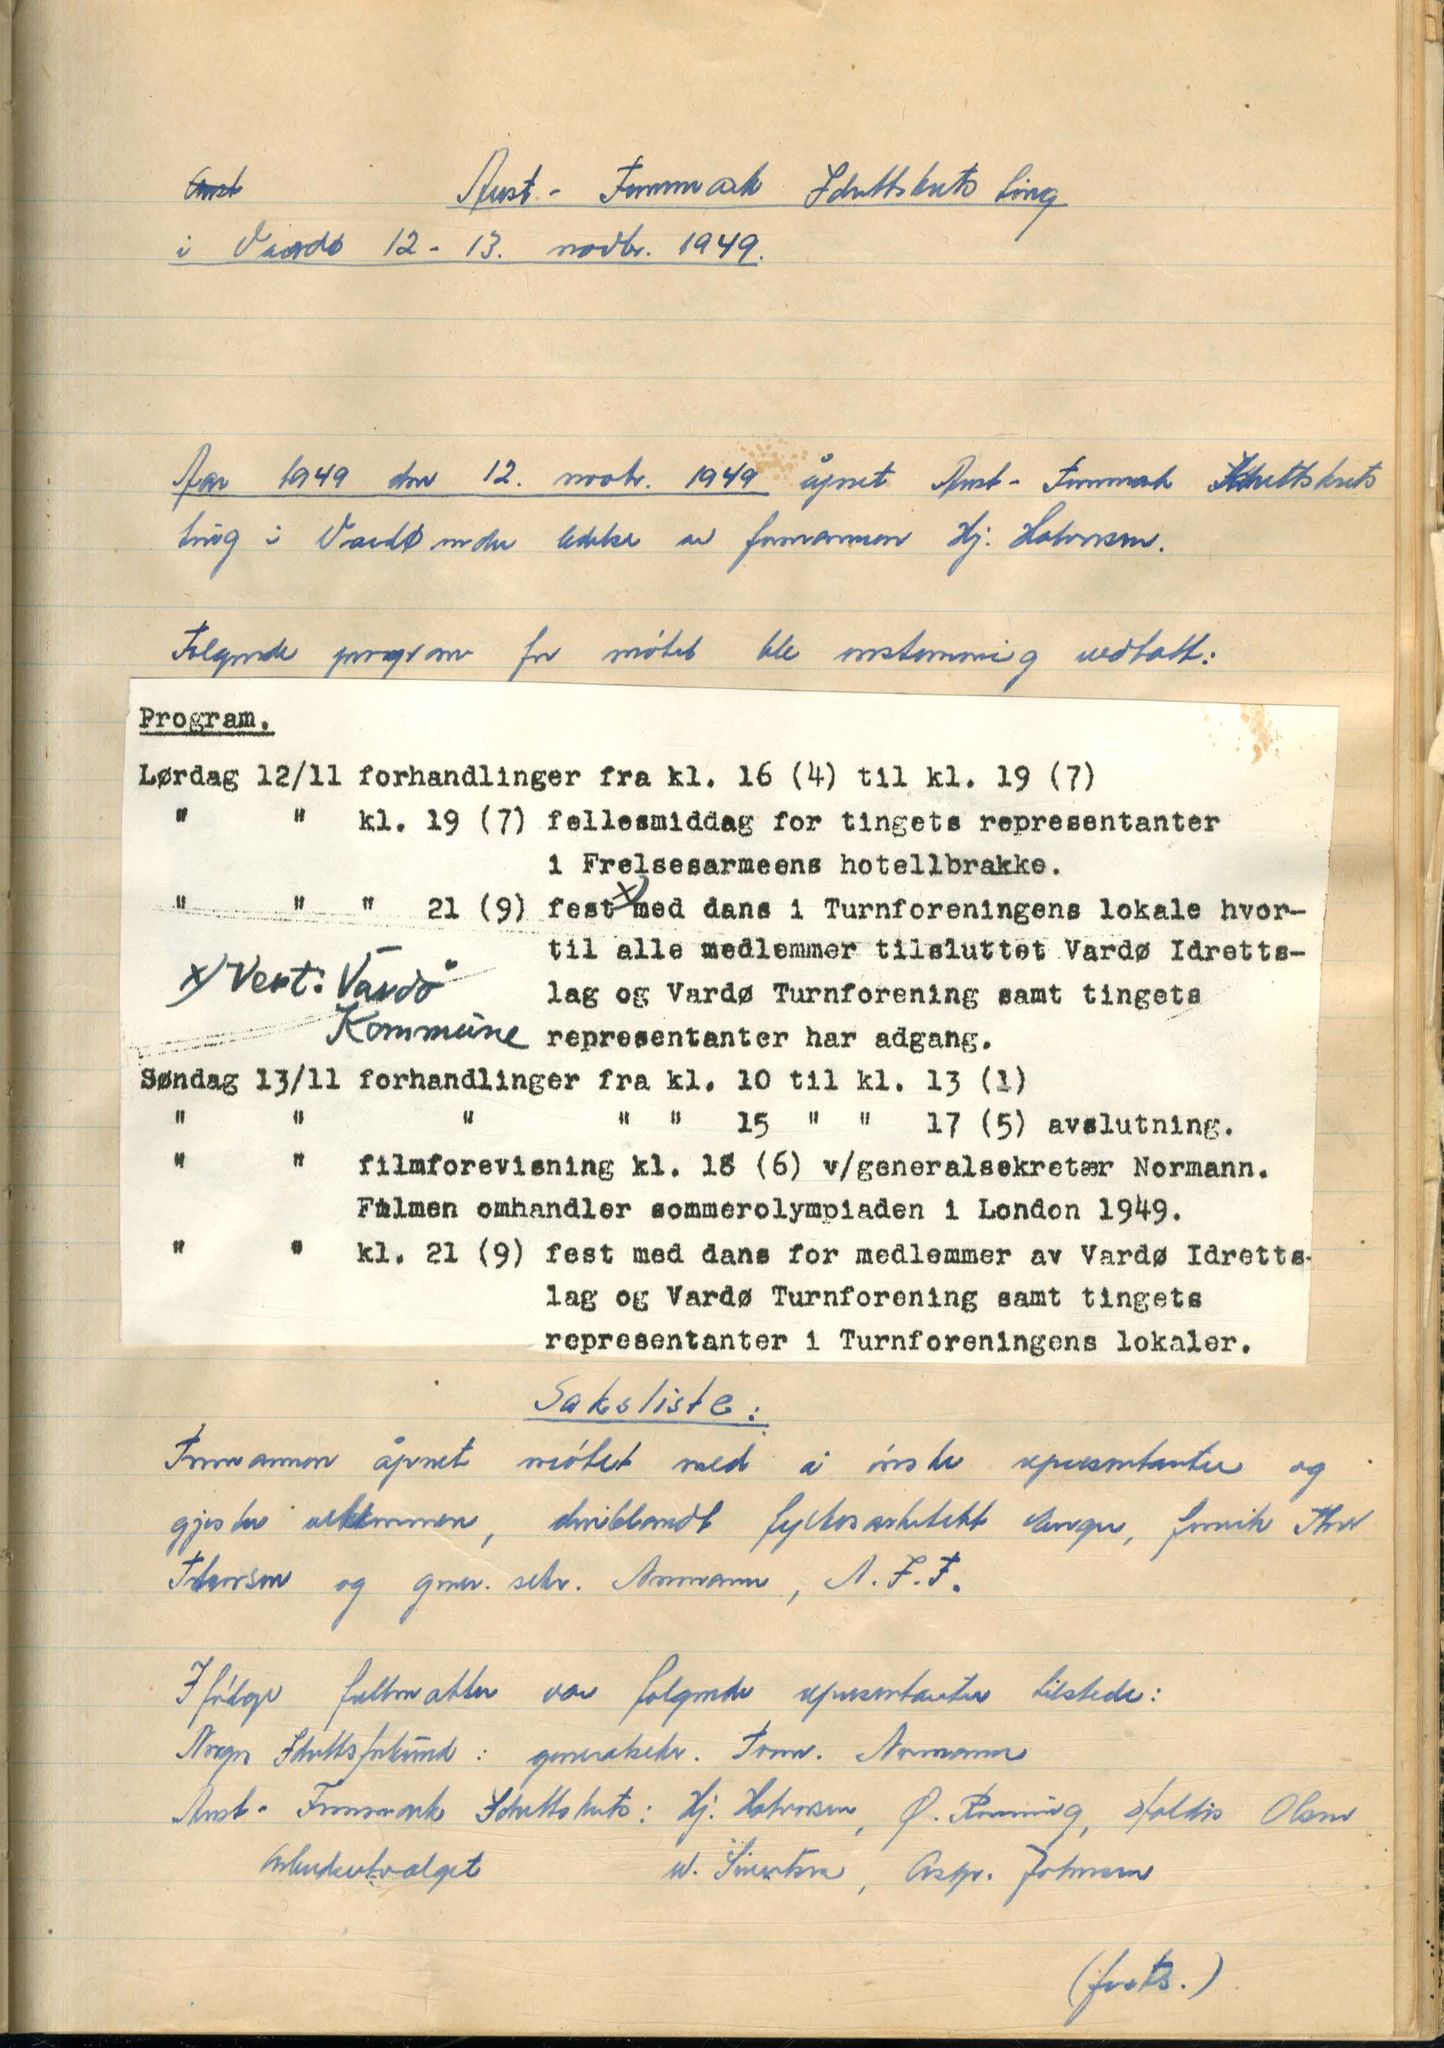 Aust - Finnmark Idrettskrets ting
i Vardø 12 - 13. novbr. 1949.
Aar 1949 den 12. novbr. 1949 åpnet Aust - Finnmark Idrettskrets
ting i Vardø under ledelse av formannen Hj. Halvorsen.
Følgende program for møtet ble enstemmig vedtatt:
Program.
Lørdag 12/11 forhandlinger fra kl. 16 (4) til kl. 19 (7)
" " kl. 19 (7) fellesmiddag for tingets representanter
i Frelsesarmeens hotellbrakke.
" " " 21 (9) fest x) med dans i Turnforeningens lokale hvor-
til alle medlemmer tilsluttet Vardø Idretts-
lag og Vardø Turnforening samt tingets
representanter har adgang.
x) Vert: Vardø
Kommune
Søndag 13/11 forhandlinger fra kl. 10 til kl. 13 (1)
" " " " " 15 " " 17 (5) avslutning.
" " filmforevisning kl. 18 (6) v/generalsekretær Normann.
Filmen omhandler sommerolympiaden i London 1949.
" " kl. 21 (9) fest med dans for medlemmer av Vardø Idretts-
lag og Vardø Turnforening samt tingets
representanter i Turnforeningens lokaler.
Saksliste:
Formannen åpnet møtet med å ønske representanter og
gjester velkommen, deriblandt fylkesarkitekt
og gener. sekr. Normann, N.I.F.
Ifølge fullmakter var følgende representanter tilstede:
Norges Idrettsforbund: generalsekr. Normann
Aust - Finnmark Idrettskrets: Hj. Halvorsen, Ø. Rønning, Olsen
Arbeidsutvalget W. Sivertsen, Asbj. Johnsen
(forts.)